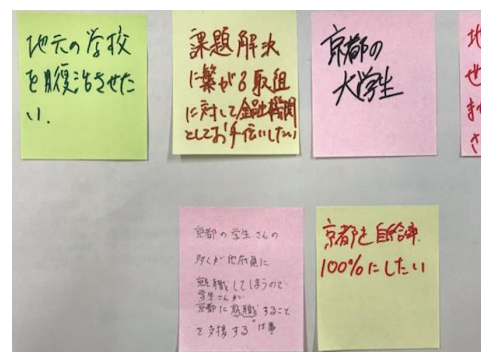 地元の学校
を復活させた
い.
課題解決
に繋がる取組
に対して金融機関
としてお手伝いしたい
京都の
大学生
地
世
京都の学生さんの
多くが他府県に
就職してしまうので
学生さんが
京都に就職すること
を支援する仕事
京都を自給率
100%にしたい